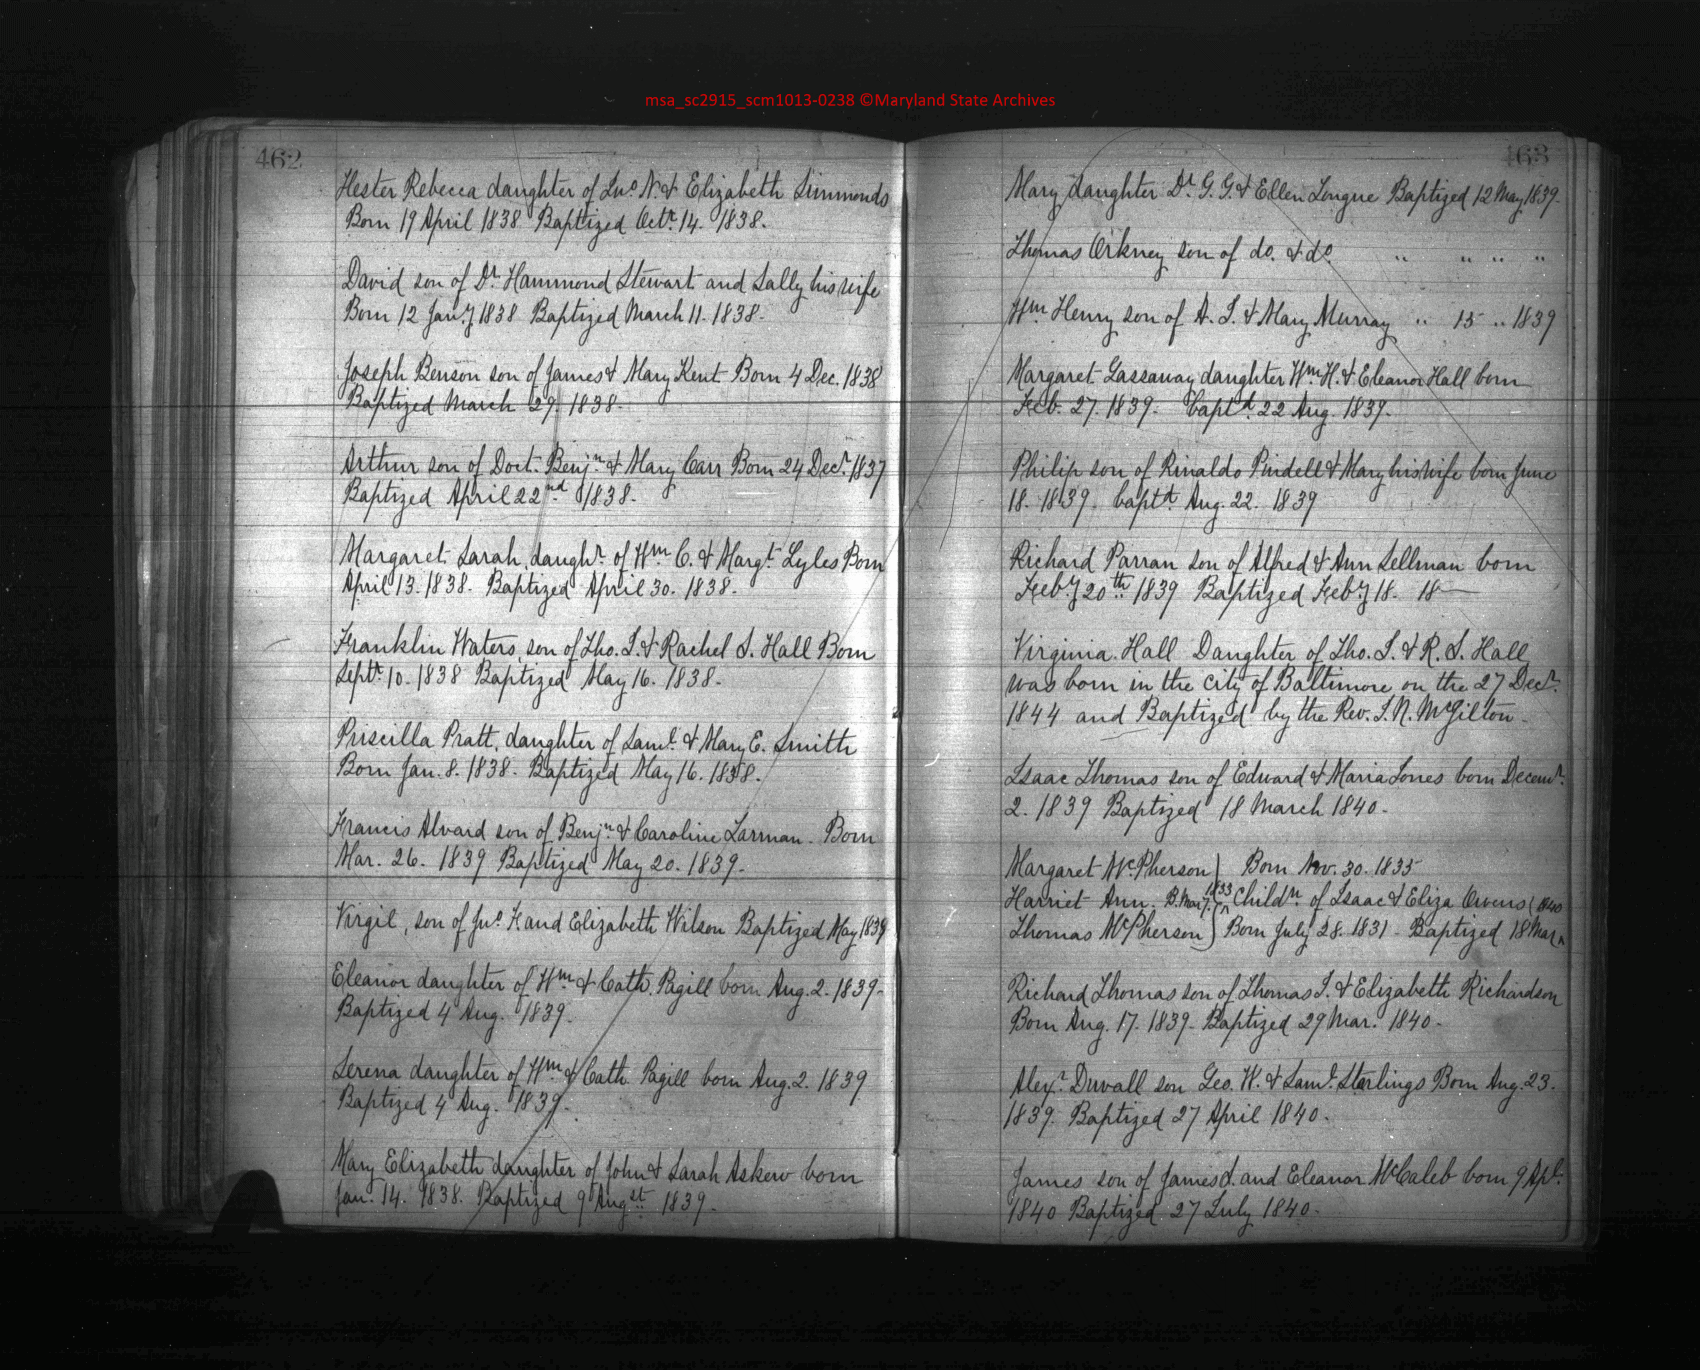 msa_sc2915_scm1013-0238 ©Maryland State Archives
462
Hester Rebecca daughter of Jno. N. & Elizabeth Simmonds
Born 19 April 1838 Baptized Octr. 14. 1838.
David son of Dr. Hammond Stewart and Sally his wife
Born 12 Jany. 1838 Baptized March 11. 1838.
Joseph Benson son of James & Mary Kent Born 4 Dec. 1838
Baptized March 29. 1838.
Arthur son of Doct. Benjn. & Mary Carr Born 24 Decr. 1837
Baptized April 22nd 1838.
Margaret Sarah, daughr. of Wm. C. & Margt. Lyles Born
April 13. 1838. Baptized April 30. 1838.
Franklin Waters, son of Tho. I. & Rachel S. Hall Born
Septr. 10. 1838 Baptized May 16. 1838.
Priscilla Pratt, daughter of Saml. & Mary E. Smith
Born Jan. 8. 1838. Baptized May 16. 1838.
Francis Alvard son of Benjn. & Caroline Larman. Born
Mar. 26. 1839 Baptized May 20. 1839.
Virgil, son of Jno. F. and Elizabeth Wilson Baptized May 1839
Eleanor daughter of Wm. & Cath. Pagill born Aug. 2. 1839.
Baptized 4 Aug. 1839.
Serena daughter of Wm. & Cath. Pagill born Aug. 2. 1839
Baptized 4 Aug. 1839.
Mary Elizabeth daughter of John & Sarah Askew born
Jan. 14. 1838. Baptized 9 Augst. 1839.
463
Mary daughter Dr. G. G. & Ellen Tongue Baptized 12 May 1839.
Thomas Orkney son of do. & do. " " " "
Wm. Henry son of A. I. & Mary Murray " 15 " 1839
Margaret Gassaway daughter Wm. H. & Eleanor Hall born
Feb. 27. 1839. baptd. 22 Aug. 1839.
Philip son of Rinaldo Pindell & Mary his wife born June
18. 1839. baptd. Aug. 22. 1839
Richard Parran son of Alfred & Ann Sellman born
Feby. 20th. 1839 Baptized Feby. 18. 18—
Virginia Hall Daughter of Tho. I. & R. S. Hall
was born in the city of Baltimore on the 27 Decr.
1844 and Baptized by the Rev. I. N. McJilton.
Isaac Thomas son of Edward & Maria Jones born Decemr.
2. 1839 Baptized 18 March 1840.
Margaret McPherson) Born Nov. 30. 1835
Harriet Ann. B. Mar 7. 1833 Childn. of Isaac & Eliza Owens (1840
Thomas McPherson) Born July 28. 1831 - Baptized 18 Mar ^
Richard Thomas son of Thomas I. & Elizabeth Richardson
Born Aug. 17. 1839. Baptized 29 Mar. 1840.
Alexr. Duvall son Geo. W. & Saml. Sterlings Born Aug. 23.
1839. Baptized 27 April 1840.
James son of James d. and Eleanor McCaleb born 9 Apl.
1840 Baptized 27 July 1840.